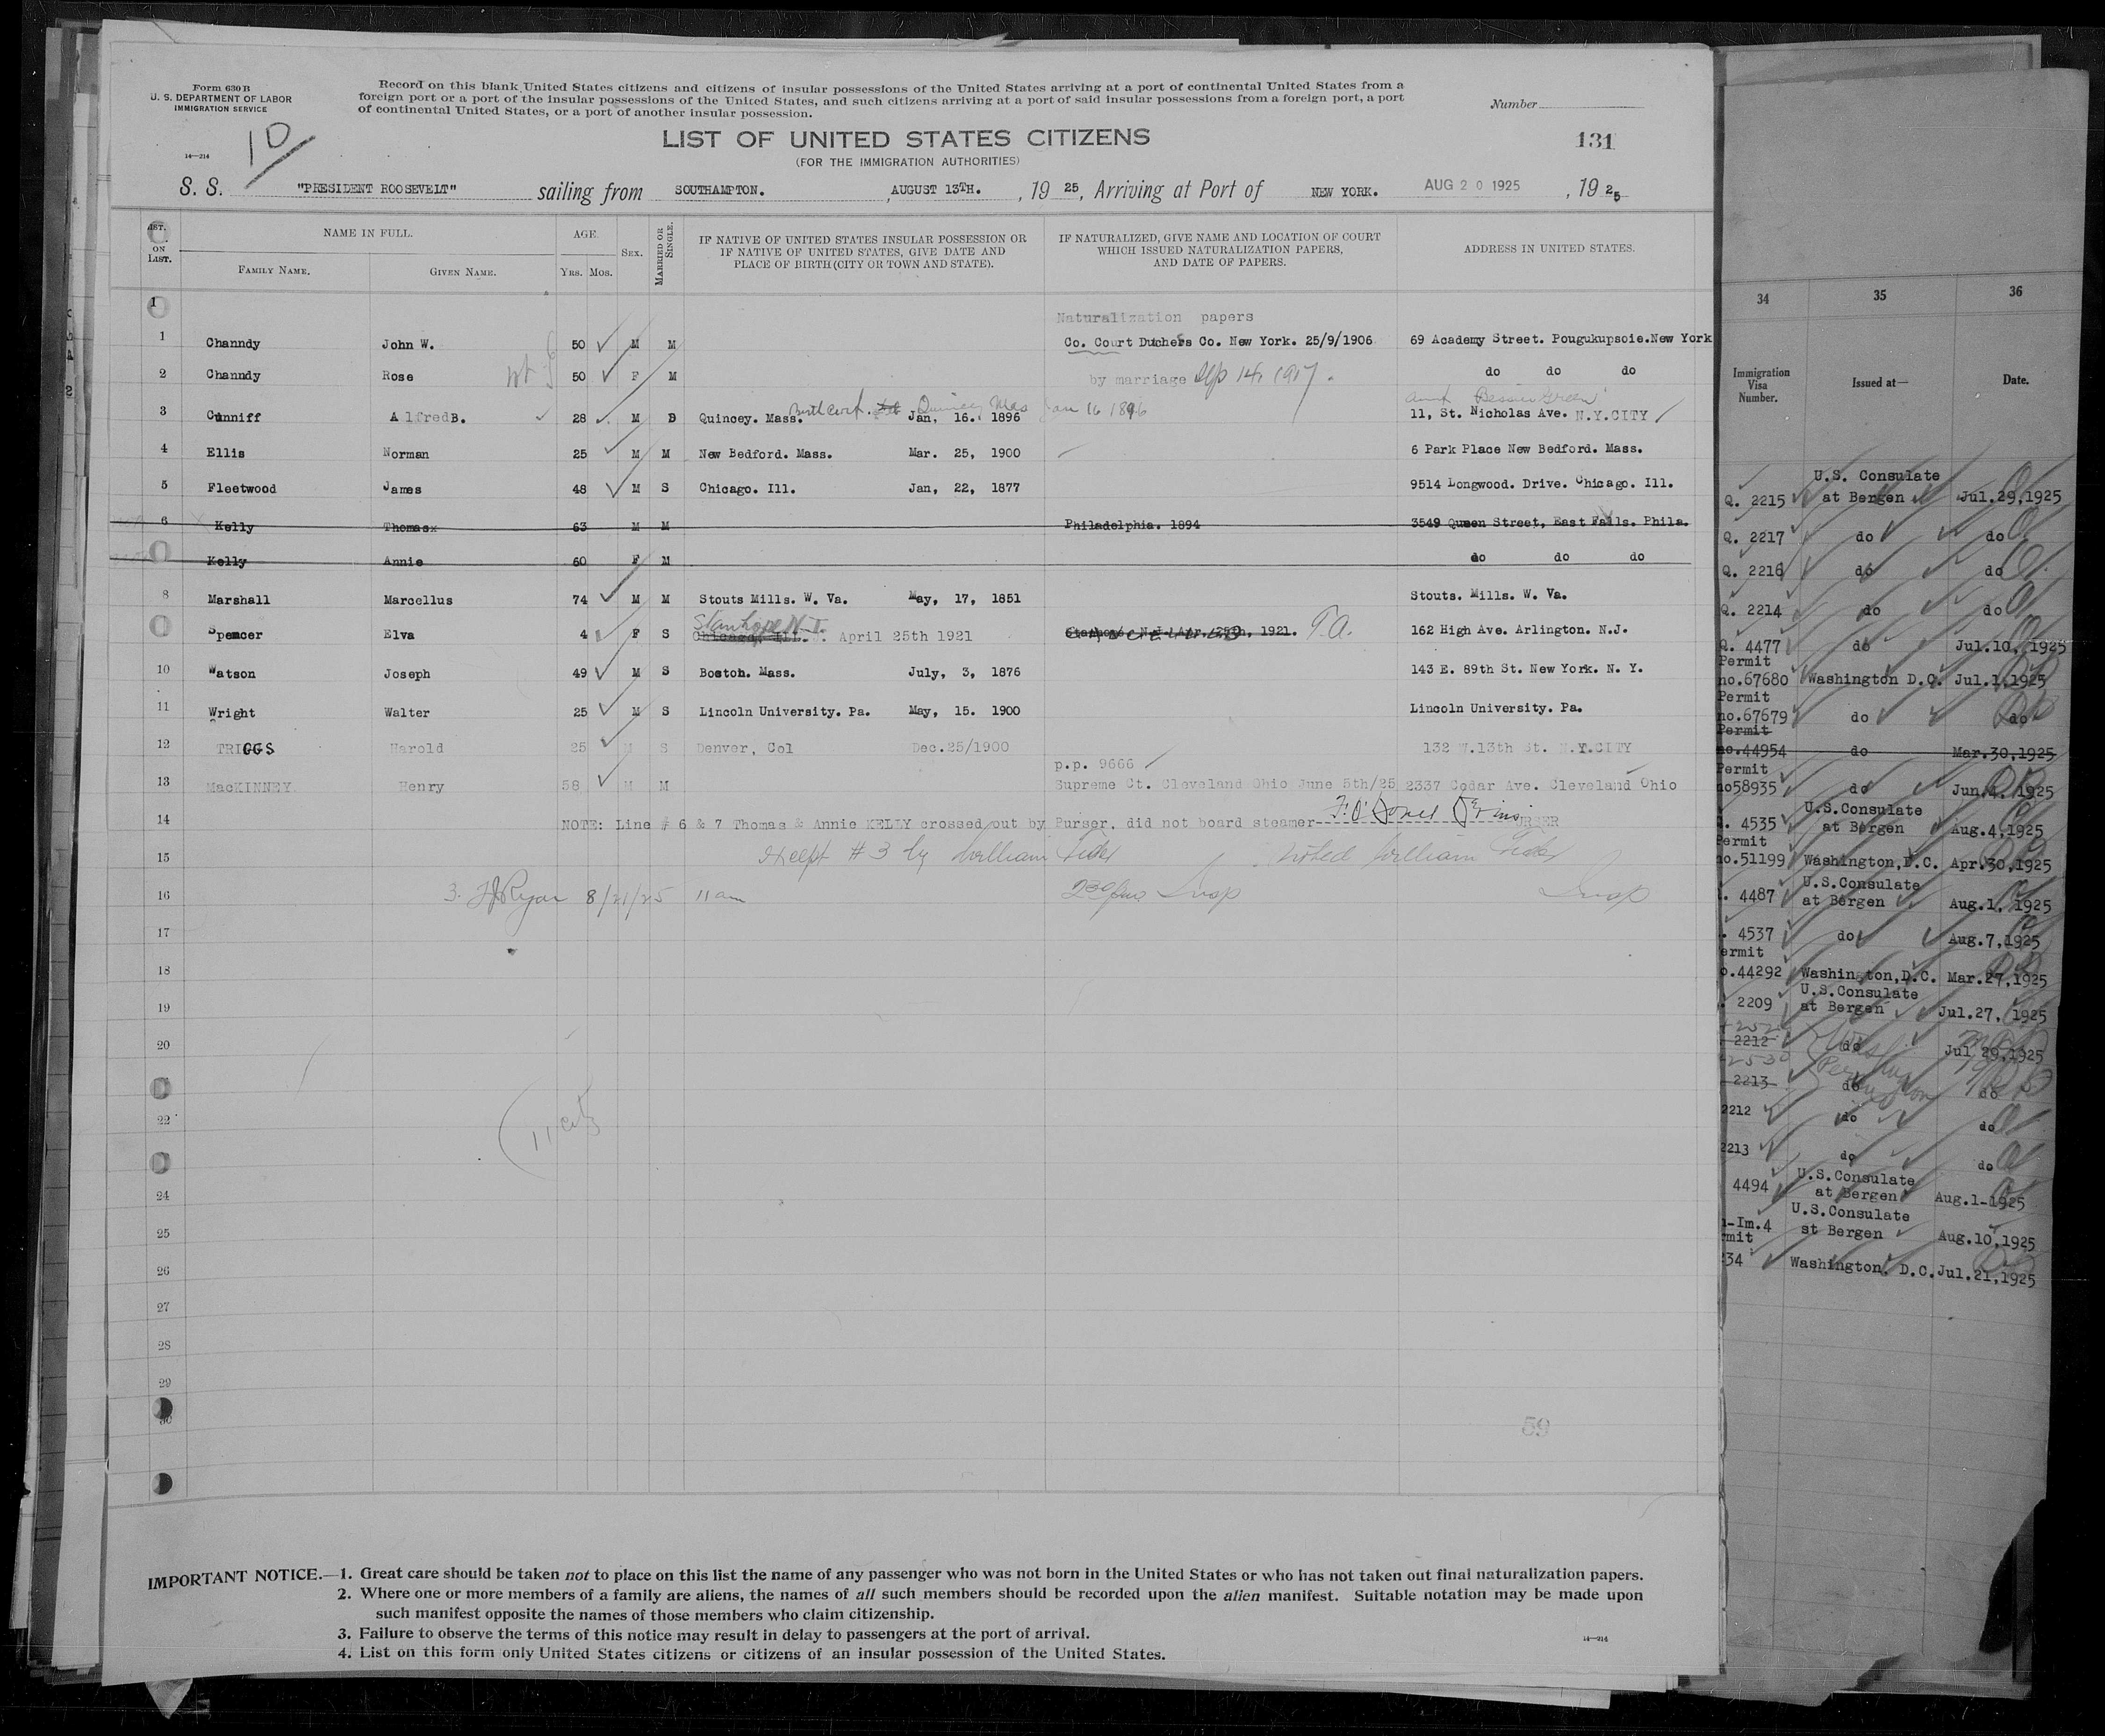 Form 630 B
U. S. DEPARTMENT OF LABOR
IMMIGRATION SERVICE
14—214
10
Record on this blank United States citizens and citizens of insular possessions of the United States arriving at a port of continental United States from a
foreign port or a port of the insular possessions of the United States, and such citizens arriving at a port of said insular possessions from a foreign port, a port
of continental United States, or a port of another insular possession.
Number
131
LIST OF UNITED STATES CITIZENS
(FOR THE IMMIGRATION AUTHORITIES)
S. S. "PRESIDENT ROOSEVELT" sailing from SOUTHAMPTON. , AUGUST 13TH. , 19 25, Arriving at Port of NEW YORK. AUG 20 1925 , 19 25
NAME IN FULL. AGE. IF NATIVE OF UNITED STATES INSULAR POSSESSION OR IF NATURALIZED, GIVE NAME AND LOCATION OF COURT
ON LIST. FAMILY NAME. GIVEN NAME. YRS. MOS. SEX. MARRIED OR SINGLE. IF NATIVE OF UNITED STATES, GIVE DATE AND PLACE OF BIRTH (CITY OR TOWN AND STATE). WHICH ISSUED NATURALIZATION PAPERS, AND DATE OF PAPERS. ADDRESS IN UNITED STATES.
1
Naturalization papers
1 Channdy John W. 50 M M Co. Court Duchess Co. New York. 25/9/1906 69 Academy Street. Pougukupsoie. New York
2 Channdy Rose 50 F M by marriage Sep 14, 1917. do do do
Birth Cert. Quincy Mas Jan 16 1896 aunt Bessie Green
3 Cunniff Alfred B. 28 M D Quincey. Mass. Jan, 16. 1896 11, St. Nicholas Ave. N.Y.CITY
4 Ellis Norman 25 M M New Bedford. Mass. Mar. 25, 1900 6 Park Place New Bedford. Mass.
5 Fleetwood James 48 M S Chicago. Ill. Jan, 22, 1877 9514 Longwood. Drive. Chicago. Ill.
6 Kelly Thomas 63 M M Philadelphia. 1894 3549 Queen Street, East Falls. Phila.
Kelly Annie 60 F M do do do
8 Marshall Marcellus 74 M M Stouts Mills. W. Va. May, 17, 1851 Stouts. Mills. W. Va.
Stanhope N.J.
Spencer Elva 4 F S Chicago, Ill. April 25th 1921 Stanhope, N.J. Apr. 25th, 1921. T.A. 162 High Ave. Arlington. N.J.
10 Watson Joseph 49 M S Boston. Mass. July, 3, 1876 143 E. 89th St. New York. N. Y.
11 Wright Walter 25 M S Lincoln University. Pa. May, 15. 1900 Lincoln University. Pa.
12 TRIGGS Harold 25 M S Denver, Col Dec.25/1900 132 W.13th St. N.Y.CITY
p.p. 9666
13 MacKINNEY Henry 58 M M Supreme Ct. Cleveland Ohio June 5th/25 2337 Cedar Ave. Cleveland Ohio
14 NOTE: Line # 6 & 7 Thomas & Annie KELLY crossed out by Purser, did not board steamer
15 except #3 by William
16 3. Ryan 8/21/25 11 am Insp Insp
17
18
19
20
22
11 citz
24
25
26
27
28
29
30
59
IMPORTANT NOTICE.—1. Great care should be taken not to place on this list the name of any passenger who was not born in the United States or who has not taken out final naturalization papers.
2. Where one or more members of a family are aliens, the names of all such members should be recorded upon the alien manifest. Suitable notation may be made upon
such manifest opposite the names of those members who claim citizenship.
3. Failure to observe the terms of this notice may result in delay to passengers at the port of arrival.
4. List on this form only United States citizens or citizens of an insular possession of the United States.
14—214
34 35 36
Immigration Visa Number. Issued at— Date.
U.S. Consulate
Q. 2215 at Bergen Jul.29,1925
Q. 2217 do do
Q. 2216 do do
Q. 2214 do do
Q. 4477 do Jul.10, 1925
Permit
no.67680 Washington D.C. Jul.1,1925
Permit
no.67679 do do
Permit
no.44954 do Mar.30,1925
Permit
no58935 do Jun.4. 1925
U.S.Consulate
4535 at Bergen Aug.4,1925
Permit
no.51199 Washington,D.C. Apr.30,1925
U.S.Consulate
4487 at Bergen Aug.1, 1925
4537 do Aug.7,1925
ermit
o.44292 Washington,D.C. Mar.27,1925
U.S.Consulate
2209 at Bergen Jul.27, 1925
2212 do Jul 29,1925
2530
2213 do do
2212 do do
2213 do do
U.S.Consulate
4494 at Bergen Aug.1-1925
U.S.Consulate
-Im.4 st Bergen Aug.10,1925
mit
34 Washington. D.C. Jul.21,1925